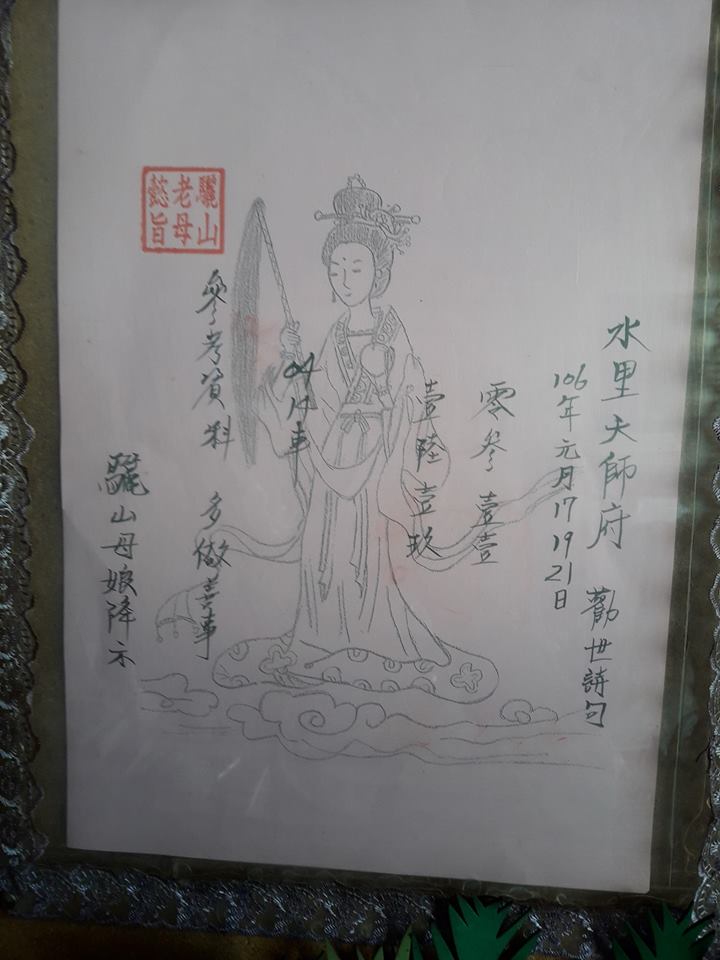 水里天師府 勸世詩句
106年元月17 19 21日
零參壹壹
壹陸壹玖
04 車
參考資料 多做善事
驪山母娘降示
驪山
老母
懿旨